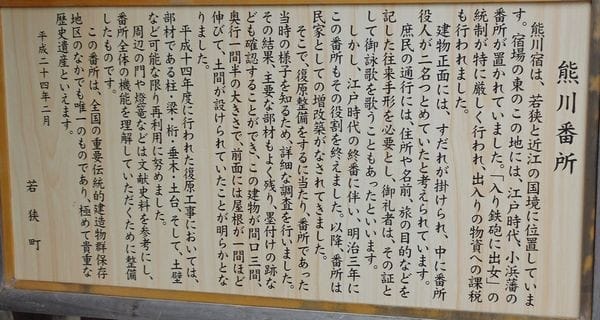 熊川番所
熊川宿は、若狭と近江の国境に位置していま
す。宿場の東のこの地には、江戸時代、小浜藩の
番所が置かれていました。「入り鉄砲に出女」の
統制が特に厳しく行われ、出入りの物資への課税
も行われました。
建物正面には、すだれが掛けられ、中に番所
役人が二名つとめていたと考えられています。
庶民の通行には、住所や名前、旅の目的などを
記した往来手形を必要とし、御礼者は、その証と
して御詠歌を歌うこともあったといいます。
しかし、江戸時代の終幕に伴い、明治三年に
この番所もその役割を終えました。以降、番所は
民家としての増改築がなされてきました。
そこで、復原整備をするに当たり、番所であった
当時の様子を知るため、詳細な調査を行いました。
その結果、主要な部材もよく残り、墨付けの跡な
ども確認することができ、この建物が間口三間、
奥行一間半の大きさで、前面には屋根が一間ほど
伸びて、土間が設けられていたことが明らかとな
りました。
平成十四年度に行われた復原工事においては、
部材である柱・梁・桁・垂木・土台、そして、土壁
など可能な限り再利用に努めました。
周辺の門や燈篭などは文献史料を参考にし、
番所全体の機能を理解していただくために整備
したものです。
この番所は、全国の重要伝統的建造物群保存
地区のなかでも唯一のものであり、極めて貴重な
歴史遺産といえます。
平成二十四年二月
若狭町